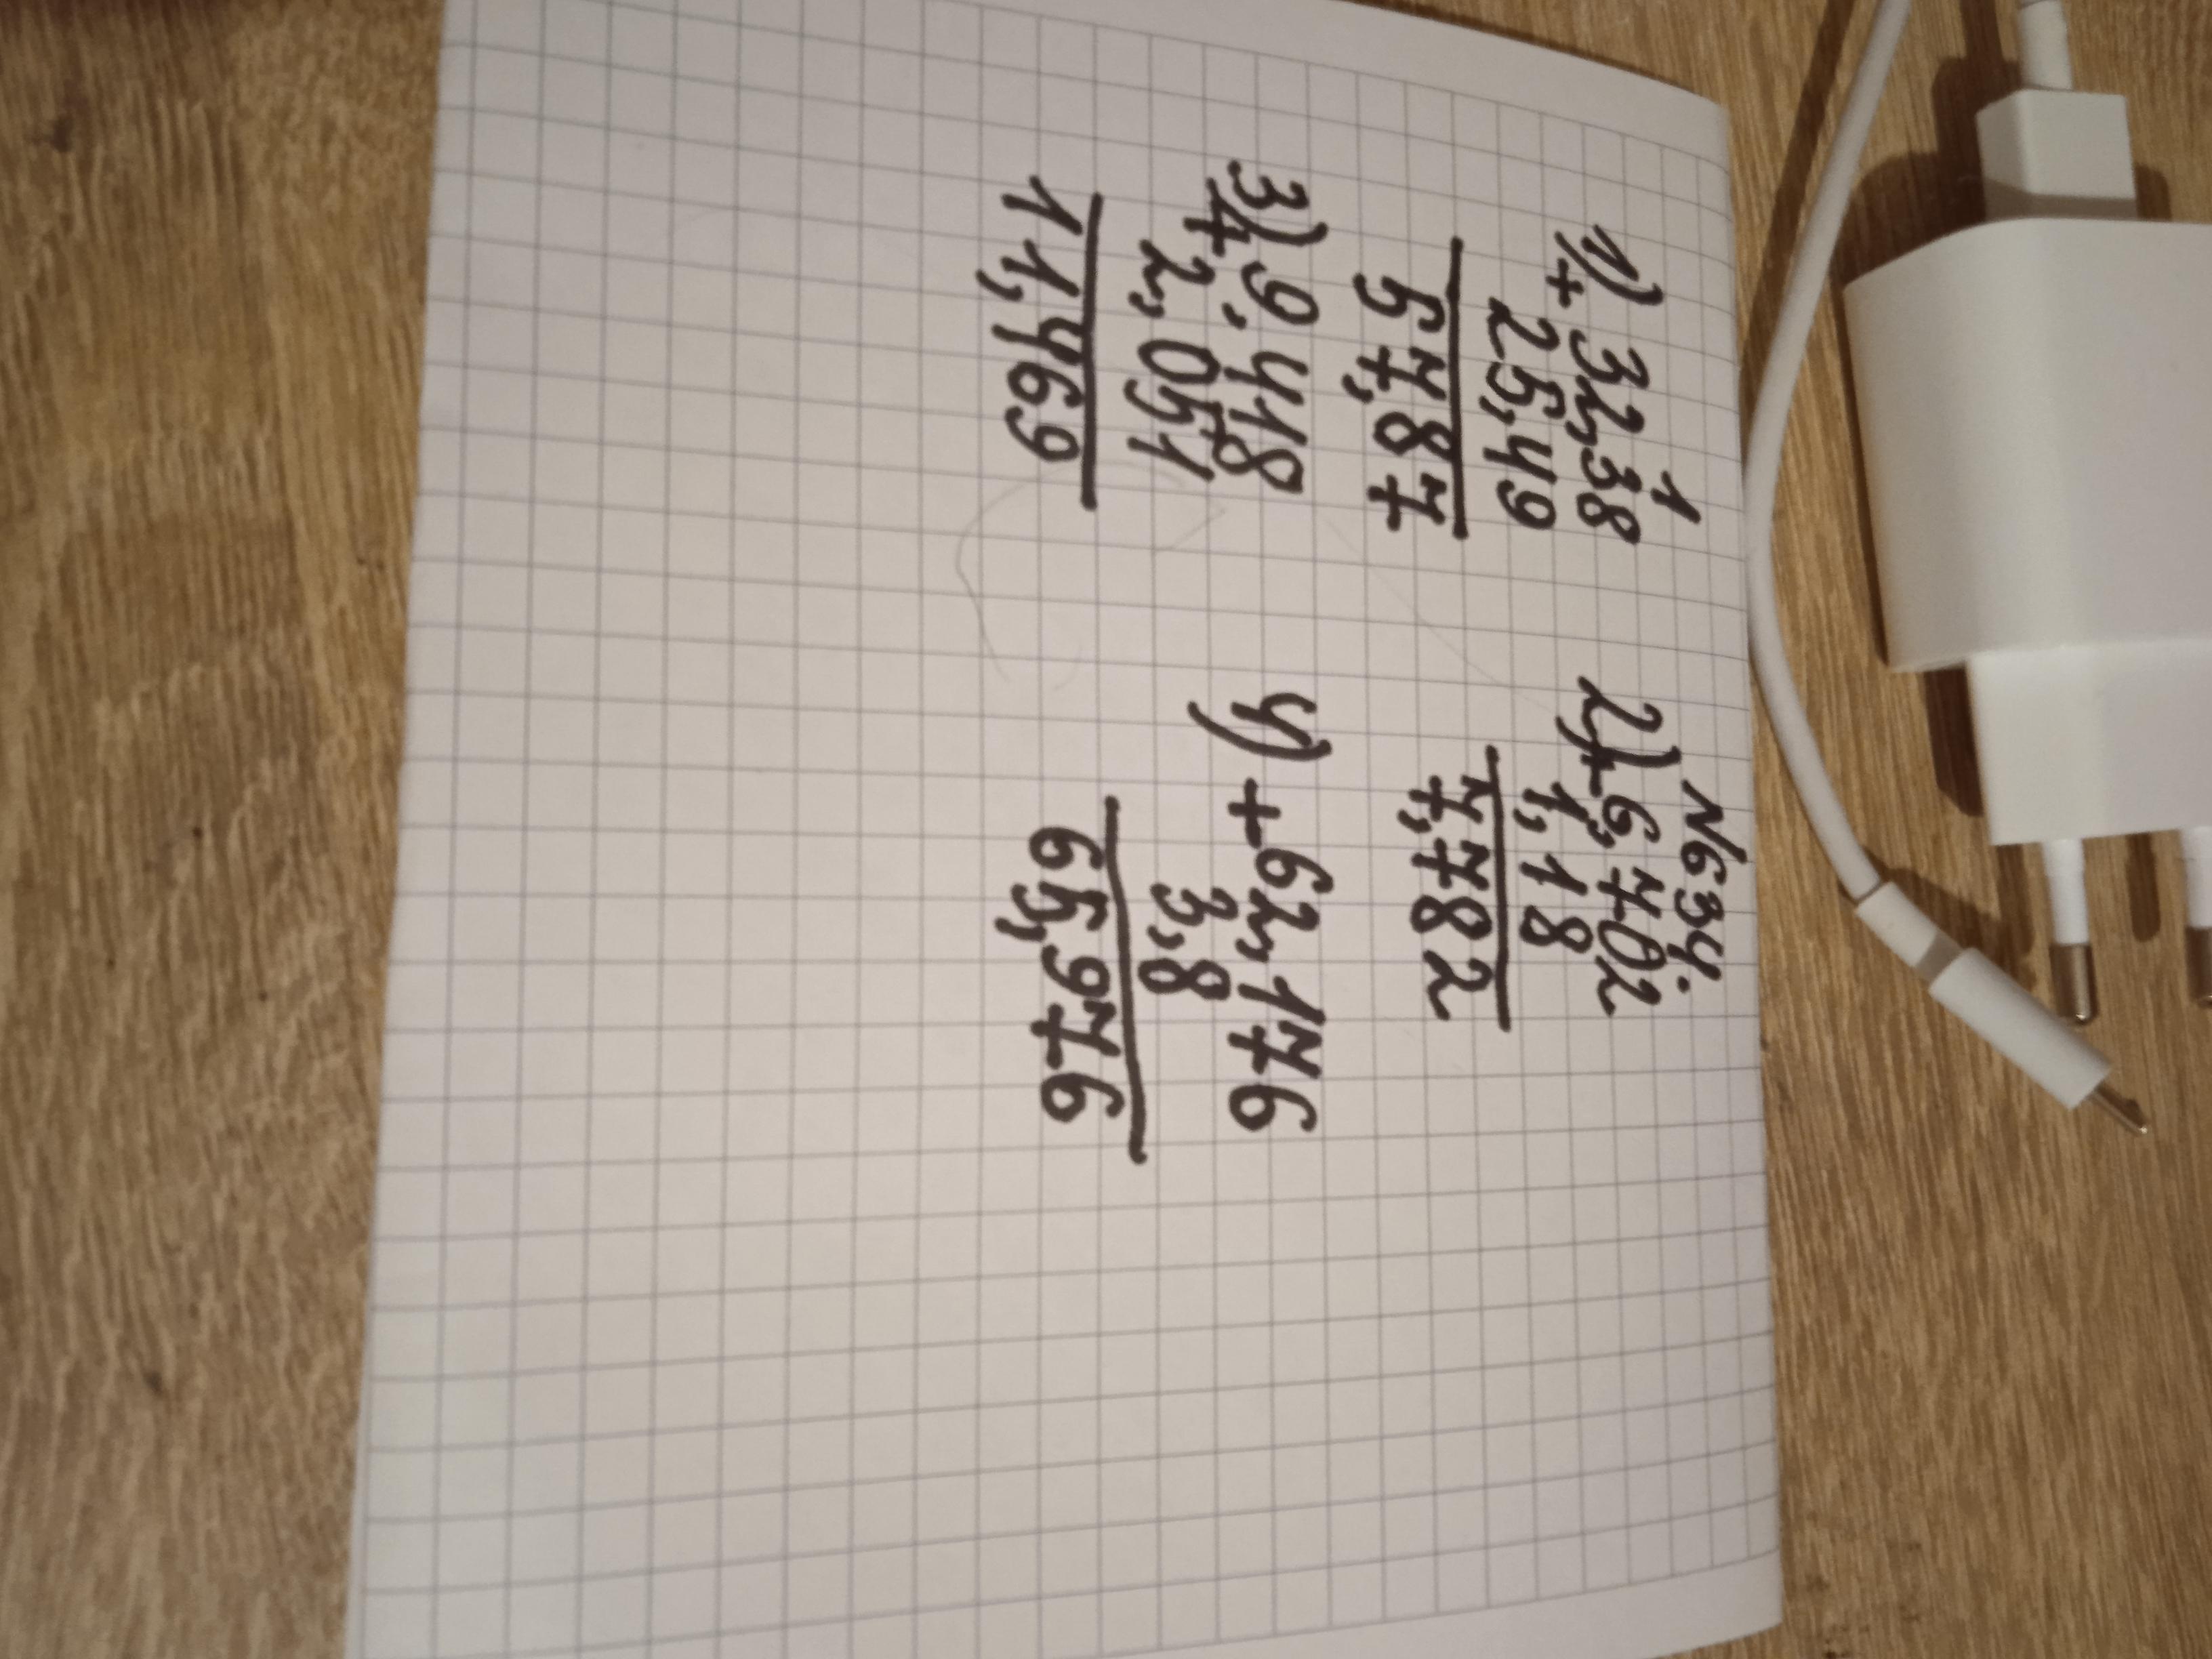 N634.
1
1) + 32,38
25,49
57,87
2) + 6,702
1,18
7,782
3) + 9,418
2,051
11,469
4) + 62,176
3,8
65,976